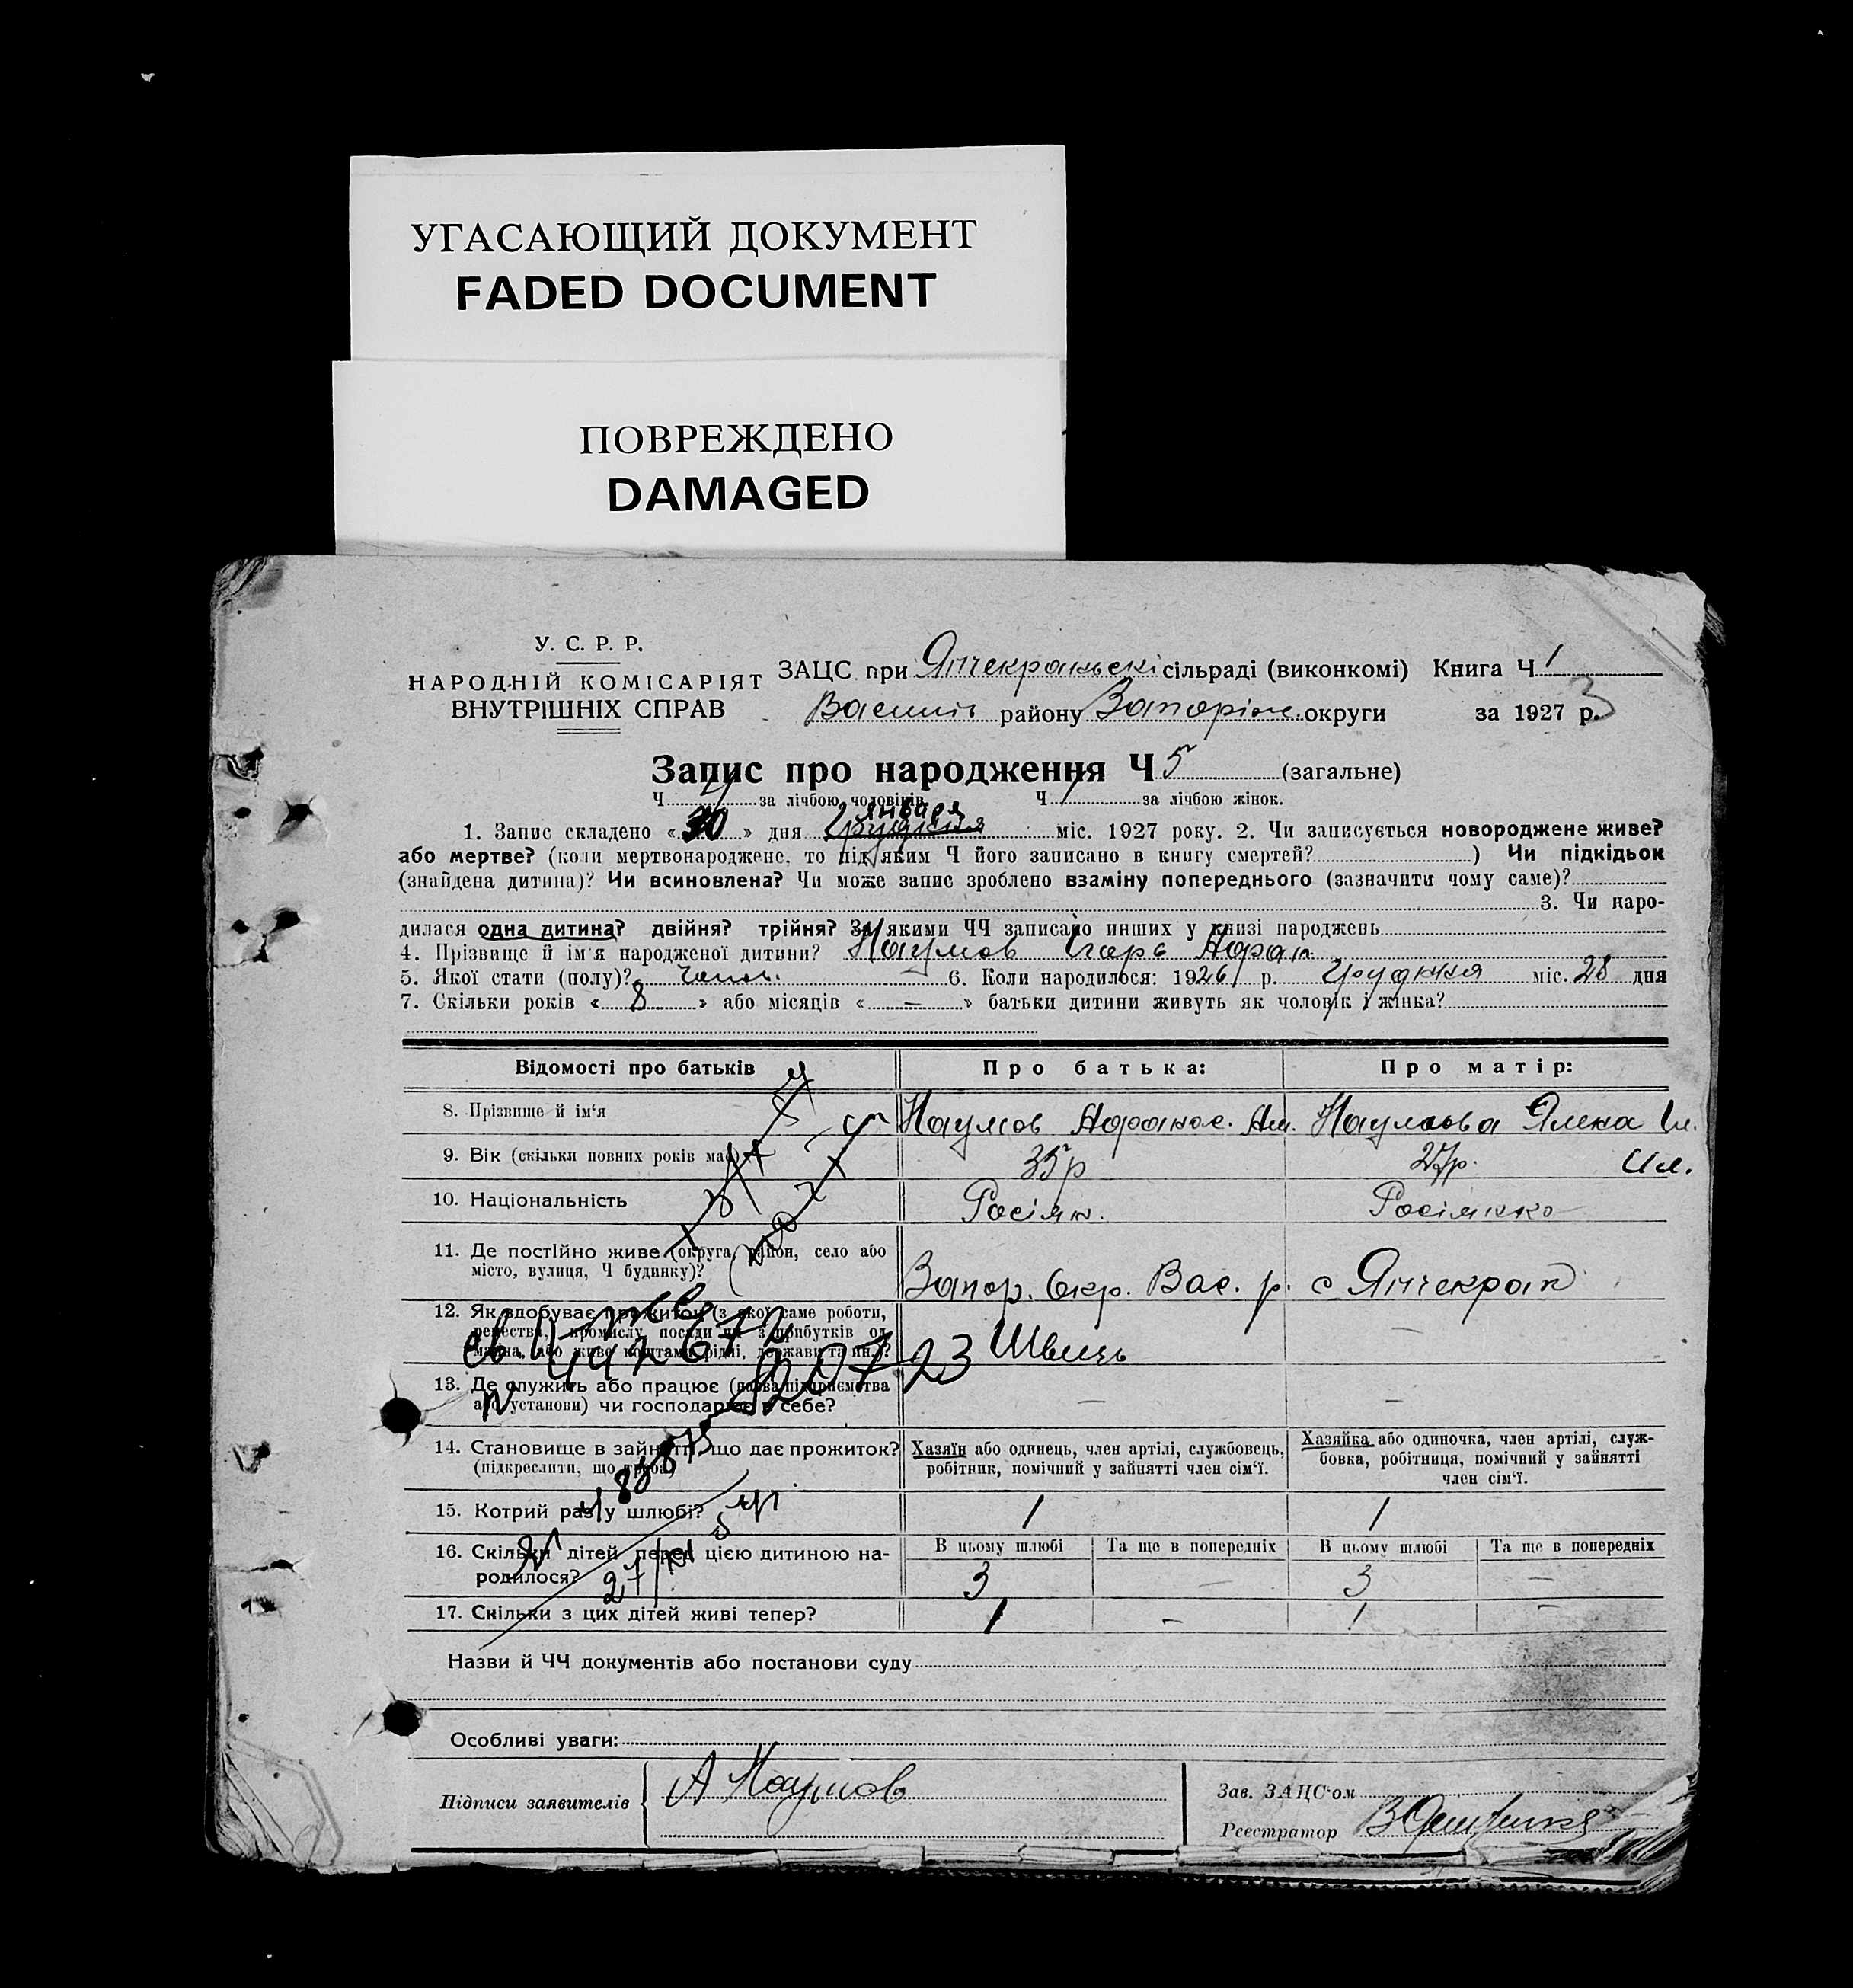 УГАСАЮЩИЙ ДОКУМЕНТ
FADED DOCUMENT
ПОВРЕЖДЕНО
DAMAGED
У. С. Р. Р.
НАРОДНІЙ КОМІСАРІЯТ
ВНУТРІШНІХ СПРАВ
ЗАЦС при Янчекракьскі сільраді (виконкомі) Книга Ч 1
Василь району Запоріж. округи за 1927 р. 3
Запис про народження Ч 5 (загальне)
Ч 4 за лічбою чоловіків. Ч 1 за лічбою жінок.
января
1. Запис складено «30» дня Грудкня міс. 1927 року. 2. Чи записується новороджене живе?
або мертве? (коли мертвонароджене, то під яким Ч його записано в книгу смертей?) Чи підкідьок
(знайдена дитина)? Чи всиновлена? Чи може запис зроблено взаміну попереднього (зазначити чому саме)?
3. Чи наро-
дилася одна дитина? двійня? трійня? За якими ЧЧ записано инших у книзі народжень
4. Прізвище й ім'я народженої дитини? Наумов Ігарь Афан.
5. Якої стати (полу)? чолов. — 6. Коли народилося: 1926 р. грудкня міс. 28 дня
7. Скільки років «8» або місяців «—» батьки дитини живуть як чоловік і жінка?
Відомості про батьків Про батька: Про матір:
8. Прізвище й ім'я Наумов Афанас. Ам. Наумова Ялена Ил.
9. Вік (скільки повних років має) 35р 27р. Ил.
10. Національність Росіян. Росіянка
11. Де постійно живе (округа, район, село або
місто, вулиця, Ч будинку)? Запор. Окр. Вас. р. с Янчекрак
12. Як здобуває прожиток (з якої саме роботи,
ремества, промислу, посади чи з прибутків од
майна, або живе коштами рідні, держави та ин.)? Швець —
13. Де служить або працює (назва підприємства
або установи) чи господарює в себе? — —
14. Становище в зайнятті, що дає прожиток?
(підкреслити, що треба)
Хазяїн або одинець, член артілі, службовець,
робітник, помічний у зайнятті член сім'ї.
Хазяйка або одиночка, член артілі, служ-
бовка, робітниця, помічний у зайнятті
член сім'ї.
15. Котрий раз у шлюбі? 1 1
16. Скільки дітей перед цією дитиною на-
родилося?
В цьому шлюбі Та ще в попередніх В цьому шлюбі Та ще в попередніх
3 — 3 —
17. Скільки з цих дітей живі тепер? 1 — 1 —
Назви й ЧЧ документів або постанови суду
Особливі уваги:
Підписи заявителів А Наумов
Зав. ЗАЦС'ом
Реєстратор